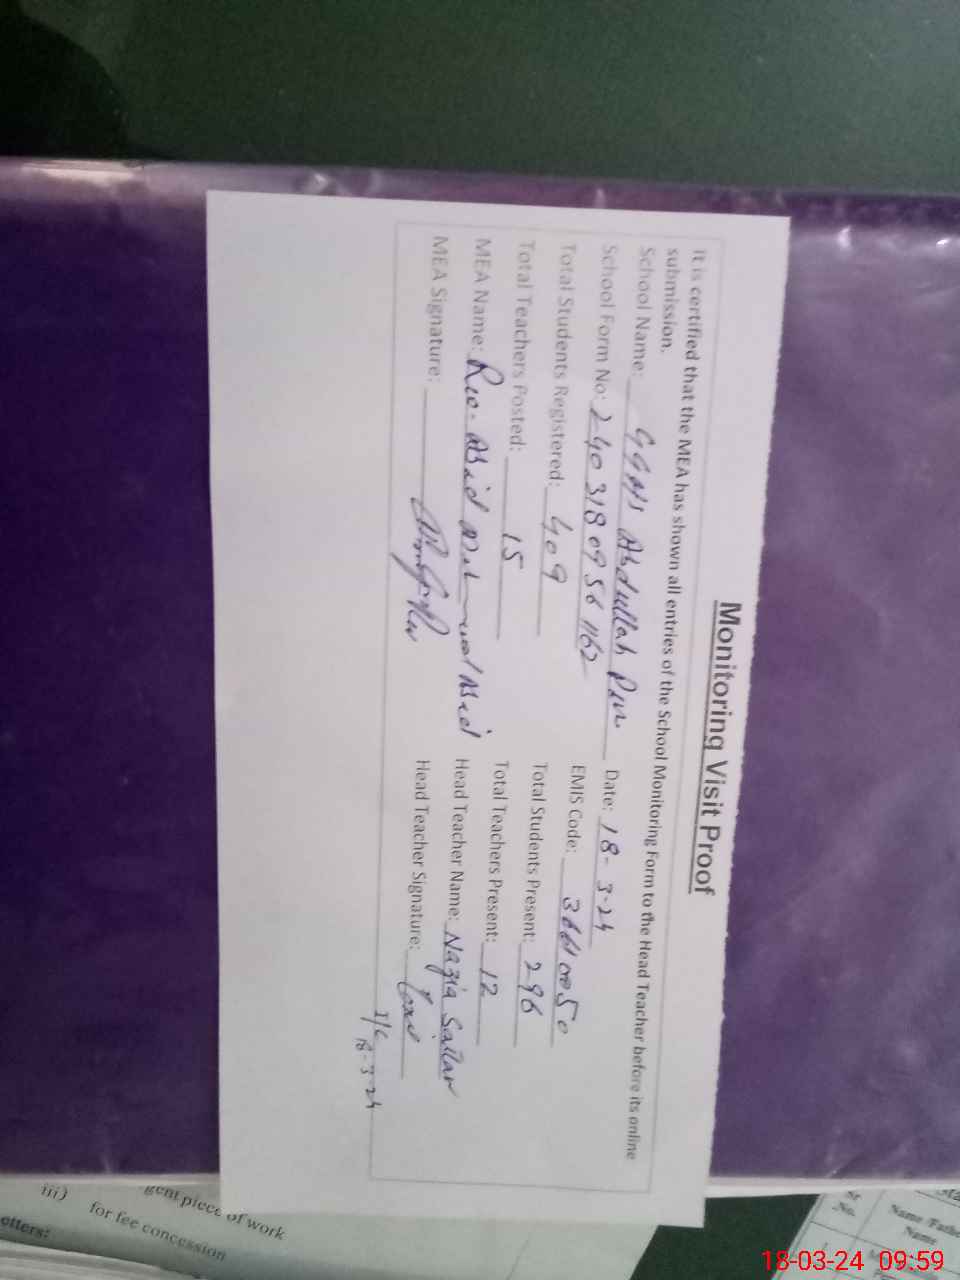 Monitoring Visit Proof
It is certified that the MEA has shown all entries of the School Monitoring Form to the Head Teacher before its online
submission.
School Name: GGHS Abdullah Pur Date: 18-3-24
School Form No: EMIS Code:
Total Students Registered: 409 Total Students Present: 296
Total Teachers Posted: 15 Total Teachers Present: 12
MEA Name: Head Teacher Name: Nazia
MEA Signature: Head Teacher Signature:
I/C
18-3-24
gent piece of work
iii) for fee concession
etters:
Sr. No. Name /Father Name
18-03-24 09:59